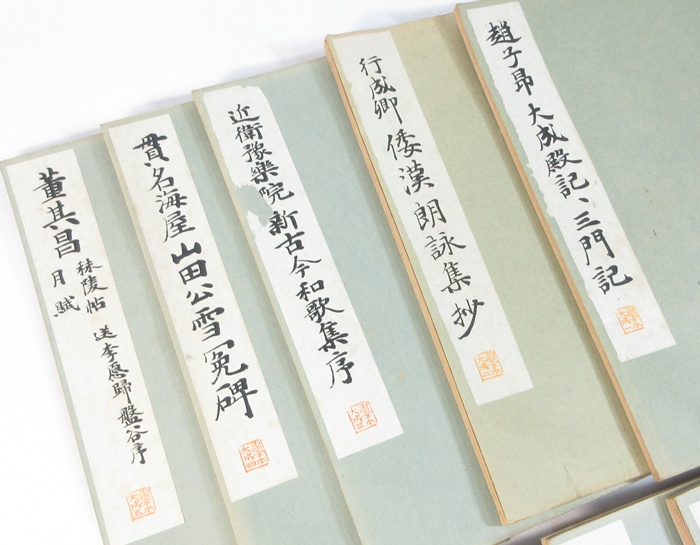 趙子昂 大成殿記、三門記
行成卿 倭漢朗詠集抄
近衛豫樂院新古今和歌集序
貫名海屋 山田公雪冤碑
董其昌 秣陵帖 送李愿歸盤谷序
月賦